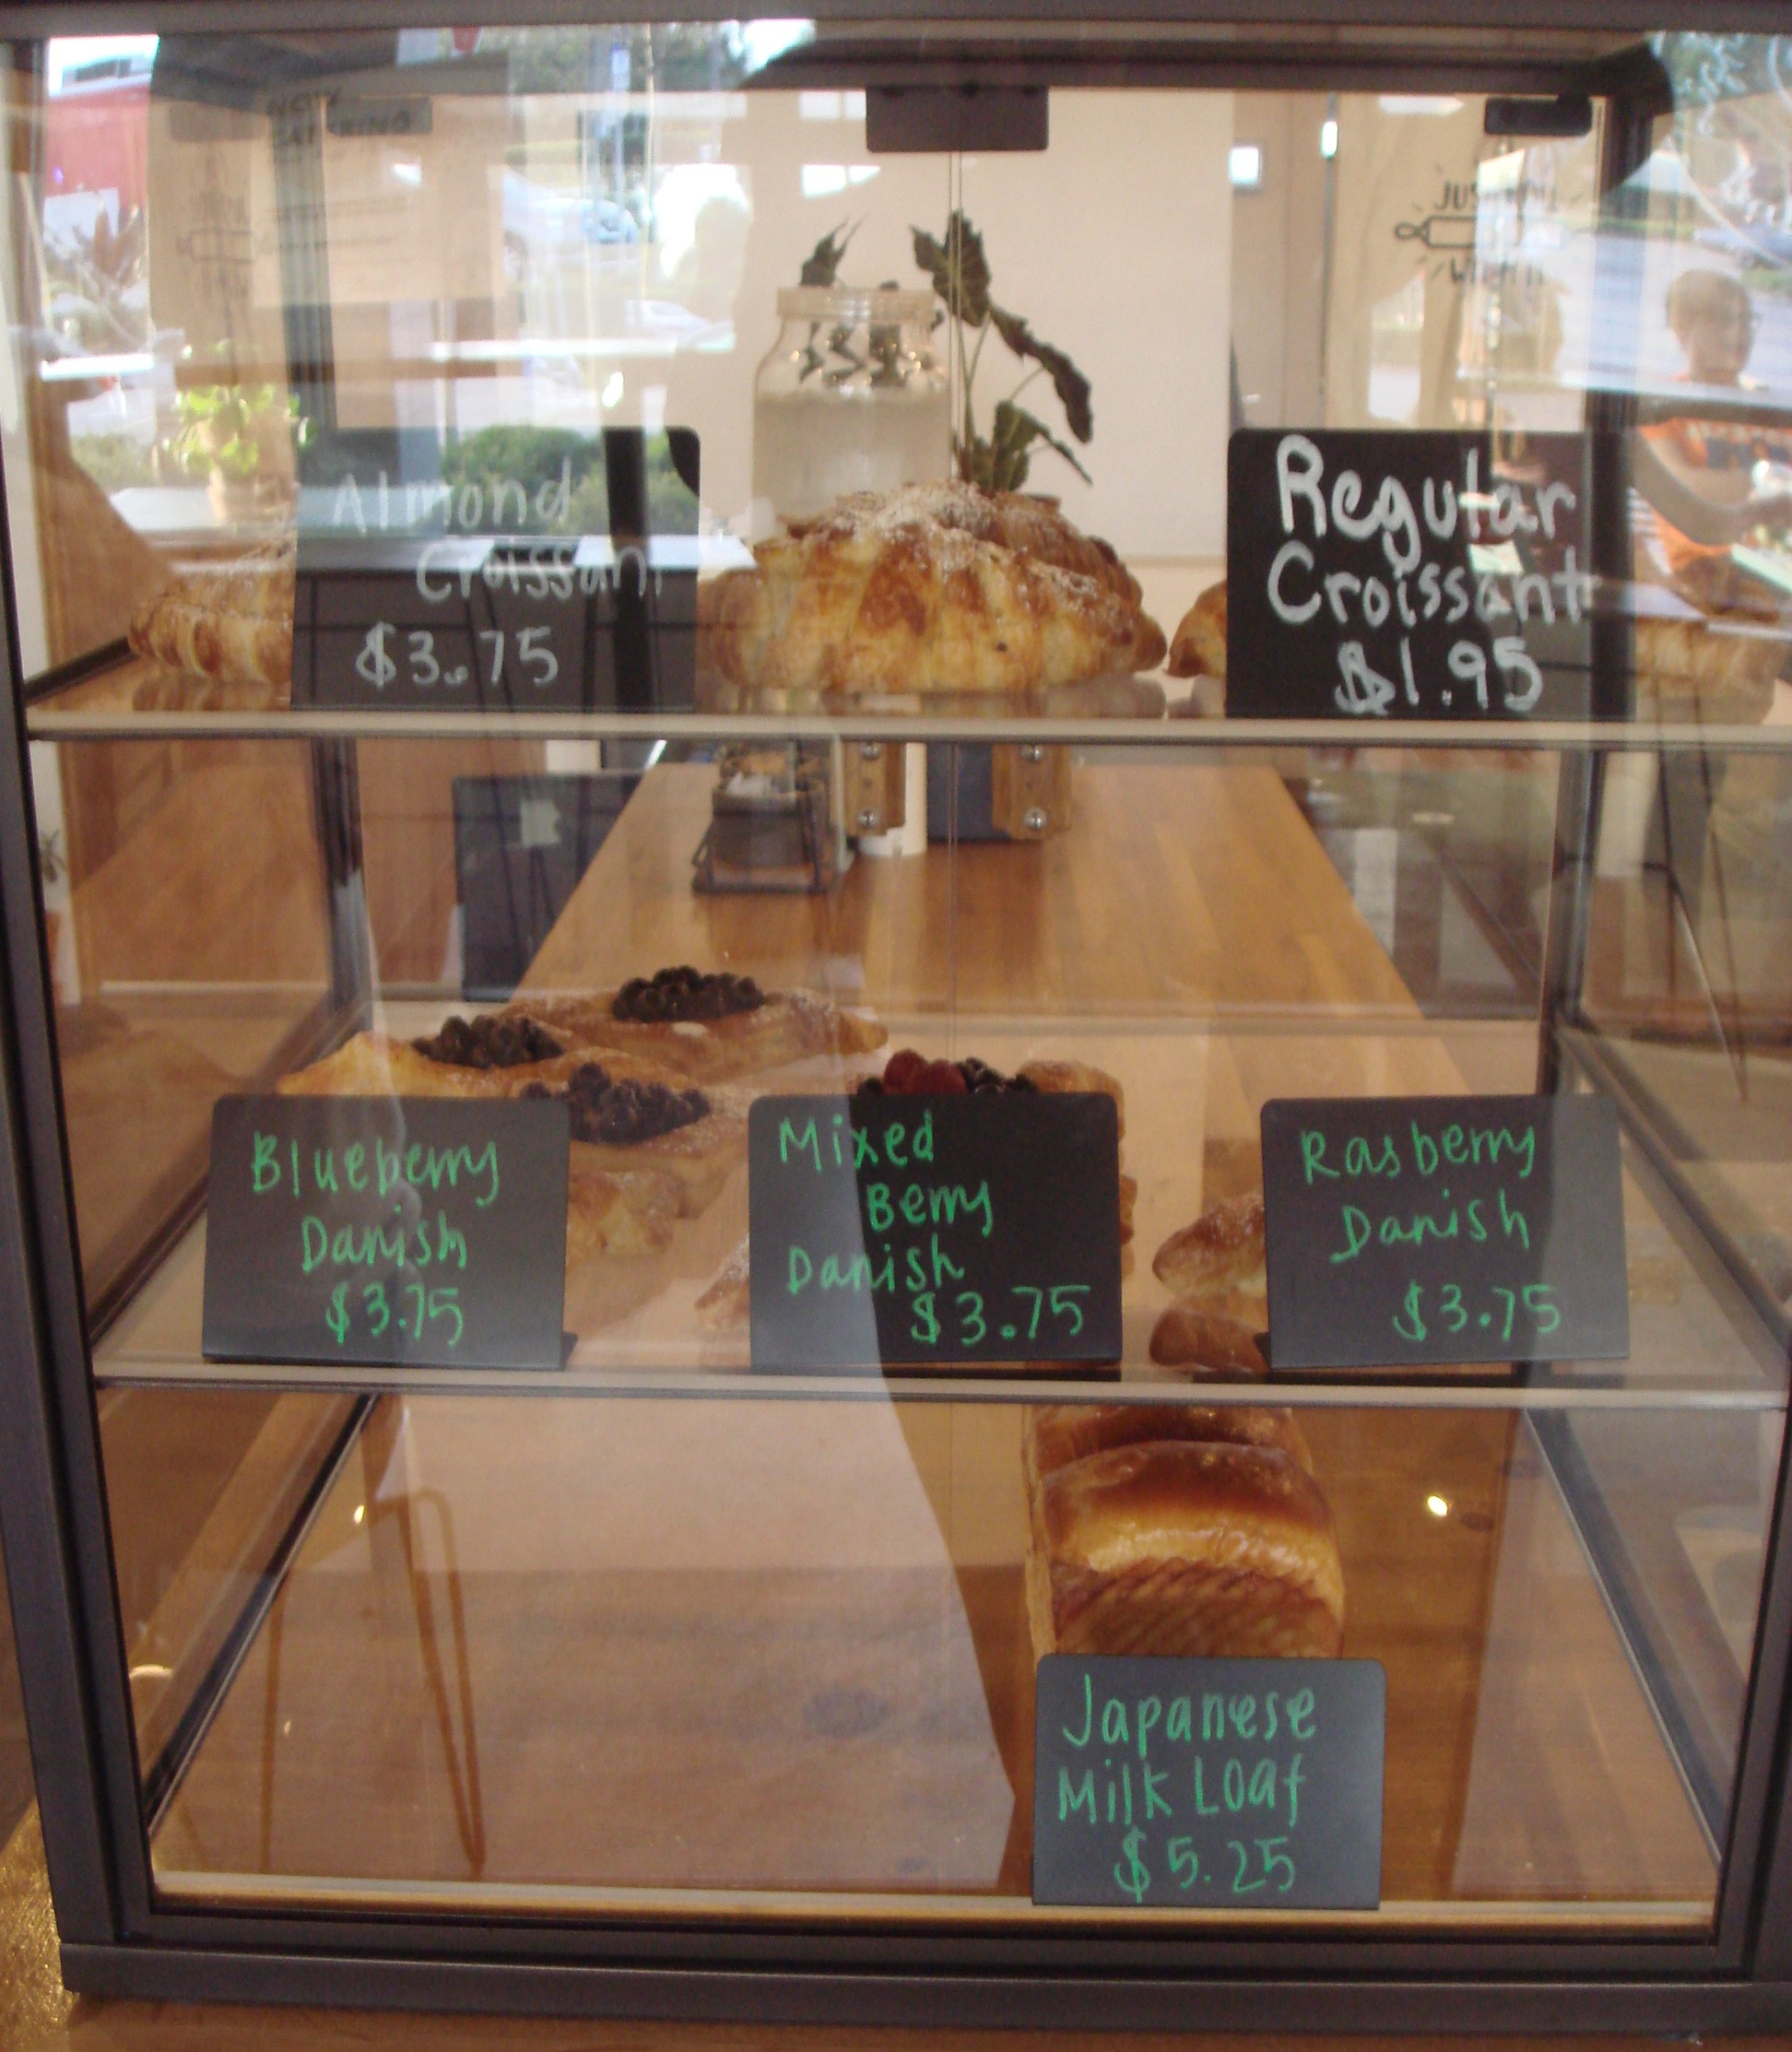 Almond
Croissant
$3.75
Regular
Croissant
$1.95
Blueberry
Danish
$3.75
Mixed
Berry
Danish
$3.75
Rasberry
Danish
$3.75
Japanese
Milk Loaf
$5.25